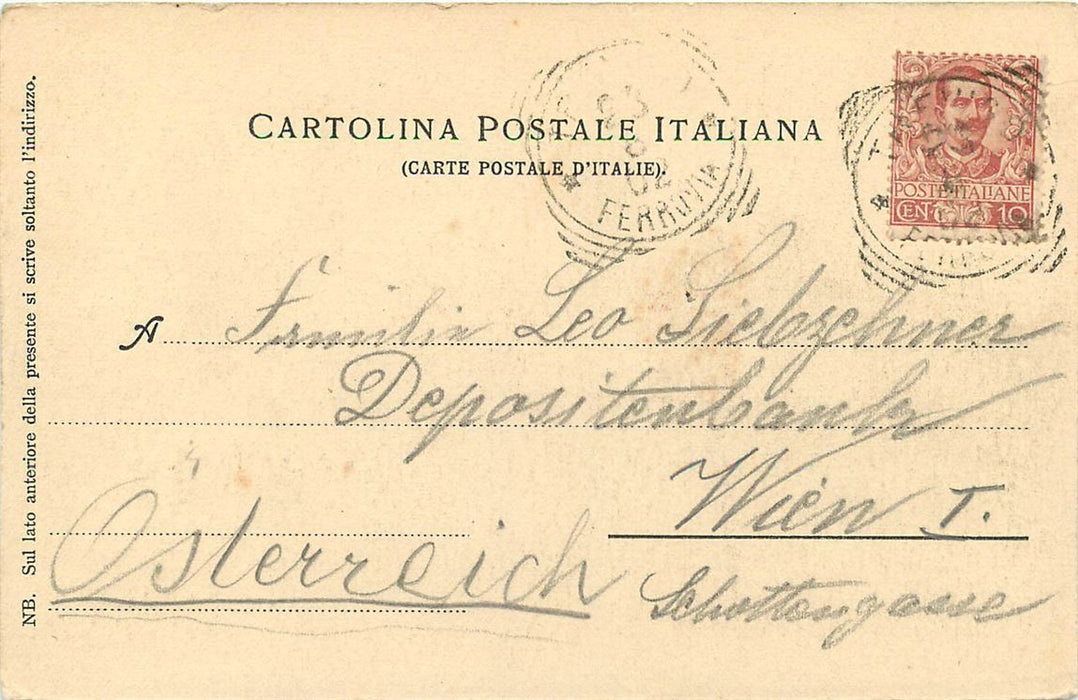 CARTOLINA POSTALE ITALIANA
(CARTE POSTALE D'ITALIE).
POSTE ITALIANE
CEN 10
FERROVIA
A Familie Leo Siebzehner
Depositenbank
Wien I.
Österreich
Schottengasse
NB. Sul lato anteriore della presente si scrive soltanto l'indirizzo.